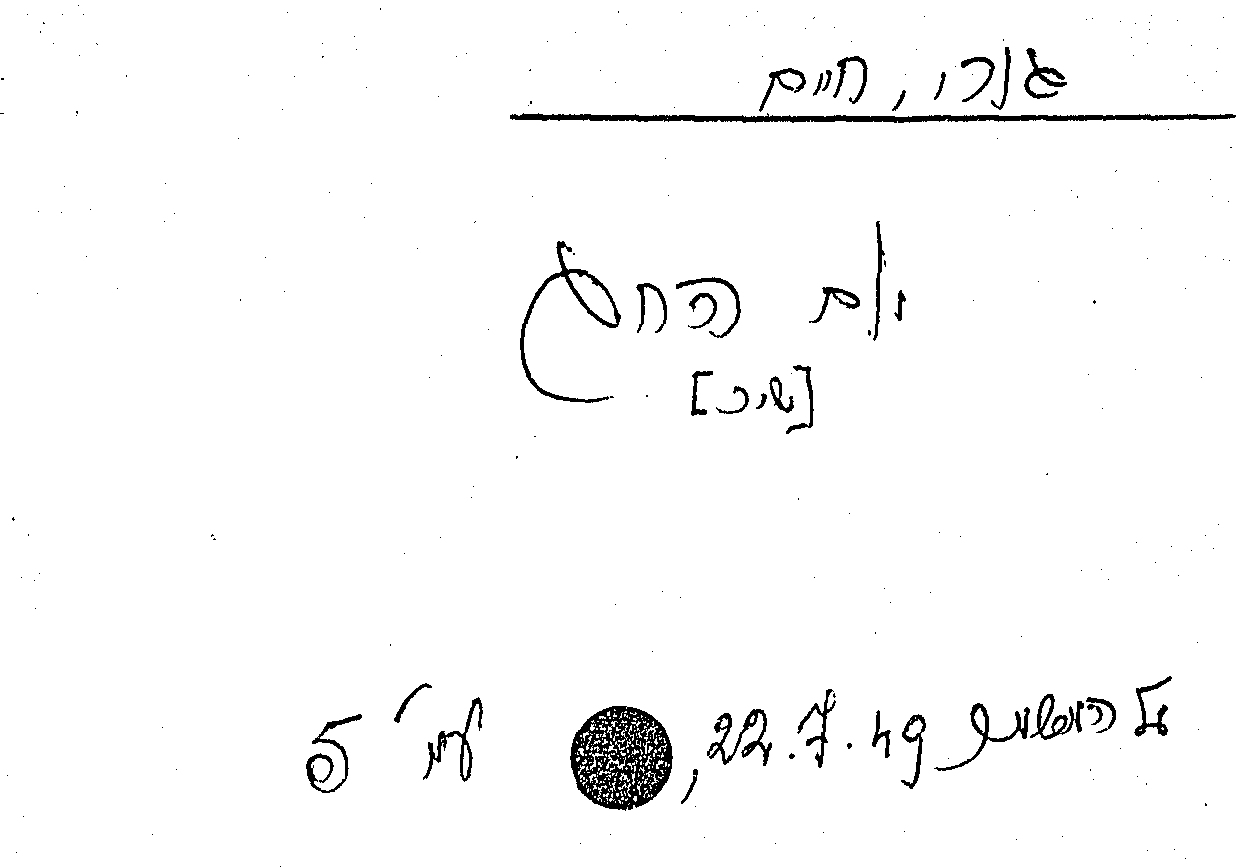 גורי, חיים
יום החג
[שיר]
על המשמר 22.7.49, עמ' 5